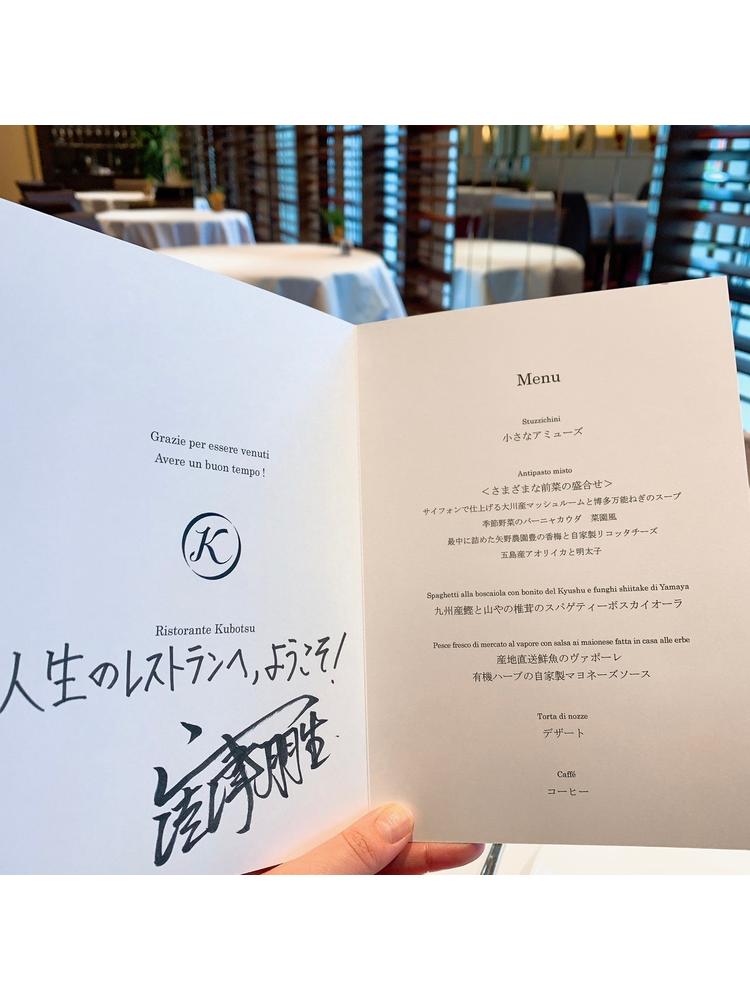 Grazie per essere venuti
Avere un buon tempo !
K
Ristorante Kubotsu
人生のレストランへ,ようこそ!
Menu
Stuzzichini
小さなアミューズ
Antipasto misto
＜さまざまな前菜の盛合せ＞
サイフォンで仕上げる大川産マッシュルームと博多万能ねぎのスープ
季節野菜のバーニャカウダ　菜園風
最中に詰めた矢野農園豊の香梅と自家製リコッタチーズ
五島産アオリイカと明太子
Spaghetti alla boscaiola con bonito del Kyushu e funghi shiitake di Yamaya
九州産鰹と山やの椎茸のスパゲティーボスカイオーラ
Pesce fresco di mercato al vapore con salsa ai maionese fatta in casa alle erbe
産地直送鮮魚のヴァポーレ
有機ハーブの自家製マヨネーズソース
Torta di nozze
デザート
Caffé
コーヒー